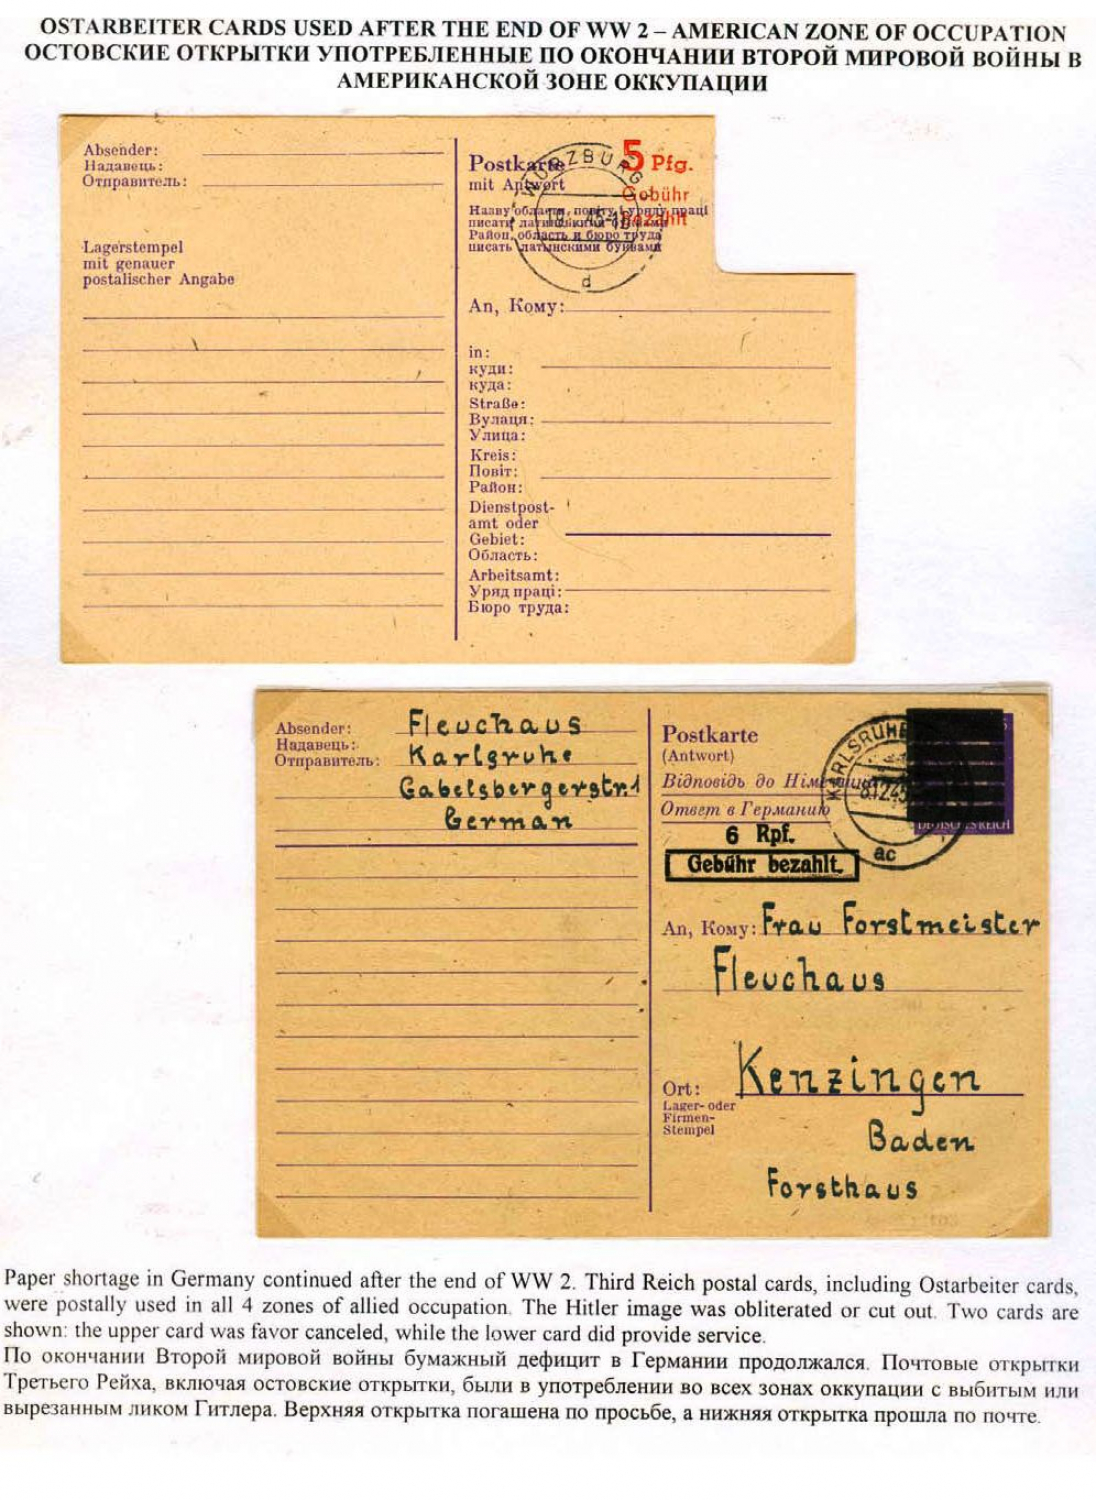 OSTARBEITER CARDS USED AFTER THE END OF WW 2 – AMERICAN ZONE OF OCCUPATION
ОСТОВСКИЕ ОТКРЫТКИ УПОТРЕБЛЕННЫЕ ПО ОКОНЧАНИИ ВТОРОЙ МИРОВОЙ ВОЙНЫ В
АМЕРИКАНСКОЙ ЗОНЕ ОККУПАЦИИ
Absender:
Надавець:
Отправитель:
Lagerstempel
mit genauer
postalischer Angabe
Postkarte
mit Antwort
Назву области, повіту і уряду праці
писати латинськими буквами
Район, область и бюро труда
писать латынскими буквами
5 Pfg.
Gebühr
bezahlt
WÜRZBURG
d
An, Кому:
in:
куди:
куда:
Straße:
Вулаця:
Улица:
Kreis:
Повіт:
Район:
Dienstpost-
amt oder
Gebiet:
Область:
Arbeitsamt:
Уряд праці:
Бюро труда:
Absender:
Надавець:
Отправитель:
Fleuchaus
Karlsruhe
Gabelsbergerstr.1
German
Postkarte
(Antwort)
Відповідь до
Ответ в Германию
6 Rpf.
Gebühr bezahlt.
KARLSRUHE
8.12.45
ac
DEUTSCHES REICH
An, Кому: Frau Forstmeister
Fleuchaus
Ort: Kenzingen
Lager- oder
Firmen-
Stempel
Baden
Forsthaus
Paper shortage in Germany continued after the end of WW 2. Third Reich postal cards, including Ostarbeiter cards,
were postally used in all 4 zones of allied occupation. The Hitler image was obliterated or cut out. Two cards are
shown: the upper card was favor canceled, while the lower card did provide service.
По окончании Второй мировой войны бумажный дефицит в Германии продолжался. Почтовые открытки
Третьего Рейха, включая остовские открытки, были в употреблении во всех зонах оккупации с выбитым или
вырезанным ликом Гитлера. Верхняя открытка погашена по просьбе, а нижняя открытка прошла по почте.